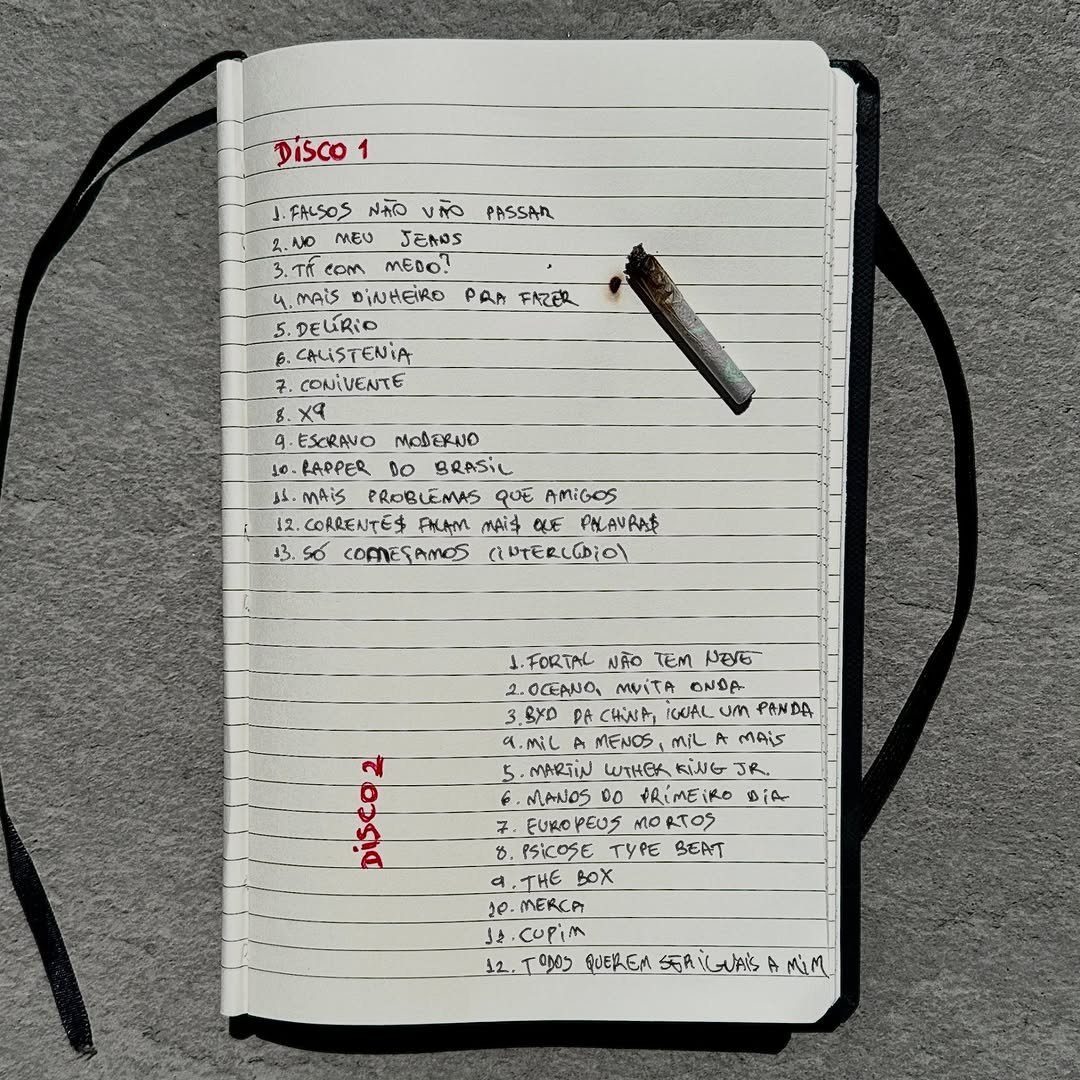 DiSCO 1
1. FALSOS NÃO VÃO PASSAR
2. NO MEU JEANS
3. TÁ COM MEDO?
4. MAiS DiNHEiRO PRA FAZER
5. DELÍRiO
6. CALiSTENiA
7. CONiVENTE
8. X9
9. ESCRAVO MODERNO
10. RAPPER DO BRASiL
11. MAiS PROBLEMAS QUE AMiGOS
12. CORRENTE$ FALAM MAi$ QUE PALAVRA$
13. SÓ COMEÇAMOS (iNTERLÚDiO)
DiSCO 2
1. FORTAL NÃO TEM NEVE
2. OCEANO, MUiTA ONDA
3. BXD DA CHiNA, iGUAL UM PANDA
4. MiL A MENOS, MiL A MAiS
5. MARTiN LUTHER KiNG JR.
6. MANOS DO PRiMEiRO DiA
7. EUROPEUS MORTOS
8. PSiCOSE TYPE BEAT
9. THE BOX
10. MERCA
11. CUPiM
12. TODOS QUEREM SER iGUAiS A MiM